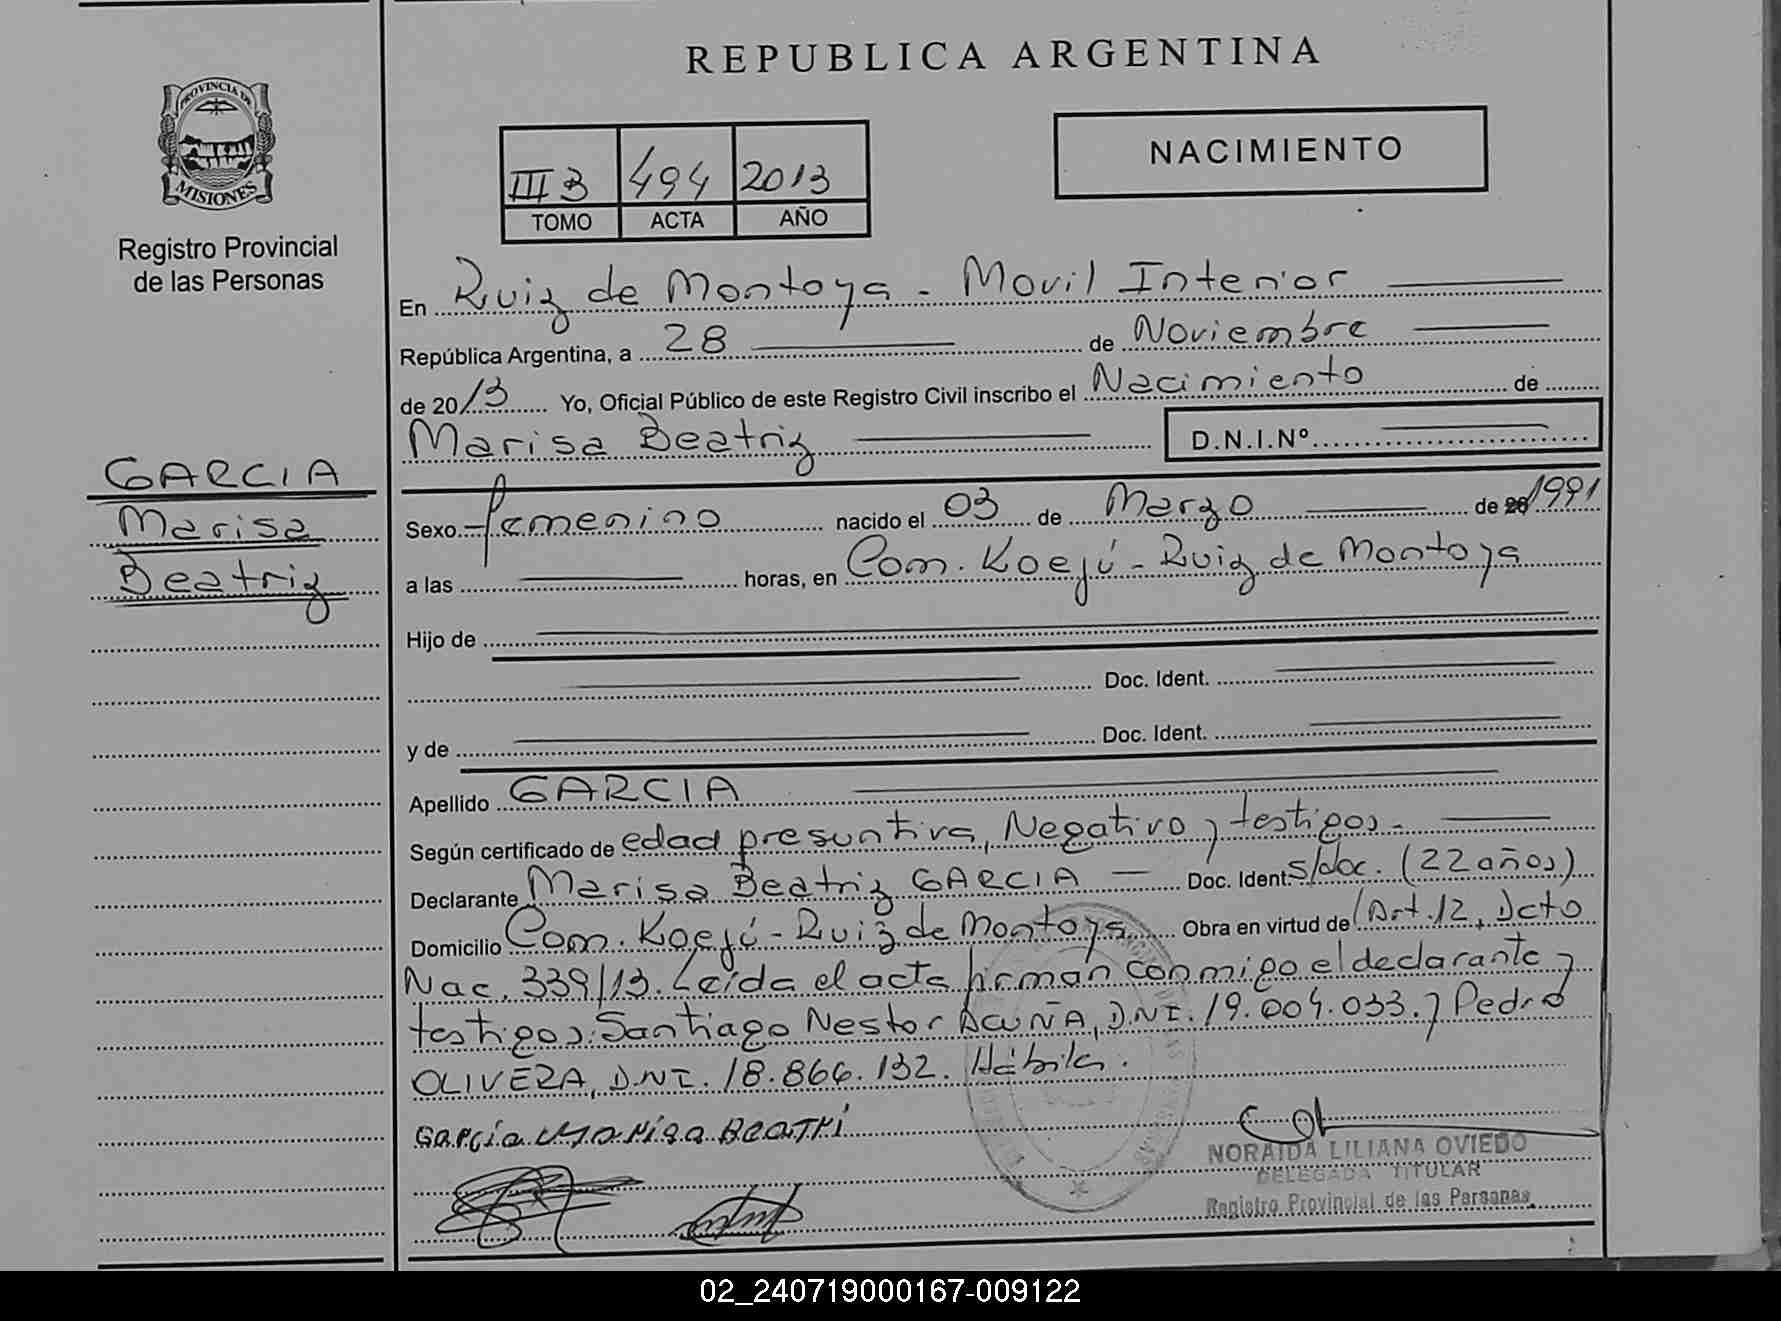 REPUBLICA ARGENTINA
PROVINCIA DE
MISIONES
Registro Provincial
de las Personas
NACIMIENTO
III B 494 2013
TOMO ACTA AÑO
En Ruiz de Montoya - Movil Interior
República Argentina, a 28 de Noviembre
de 2013 Yo, Oficial Público de este Registro Civil inscribo el Nacimiento de
Marisa Beatriz D.N.I.Nº
GARCIA
Marisa
Beatriz
Sexo femenino nacido el 03 de Marzo de 20 1991
a las horas, en Com. Koejú - Ruiz de Montoya
Hijo de
Doc. Ident.
y de Doc. Ident.
Apellido GARCIA
Según certificado de edad presuntiva, Negativo y testigos.
Declarante Marisa Beatriz GARCIA Doc. Ident. s/doc. (22 años)
Domicilio Com. Koejú - Ruiz de Montoya Obra en virtud de Art. 12, Dcto
Nac. 339/13. Leída el acta firman conmigo el declarante y
testigos: Santiago Nestor ACUÑA, D.N.I. 19.004.033. y Pedro
OLIVERA, D.N.I. 18.866.132. Hábiles.
Garcia Marisa BEATRI
NORAIDA LILIANA OVIEDO
DELEGADA TITULAR
Registro Provincial de las Personas
02_240719000167-009122